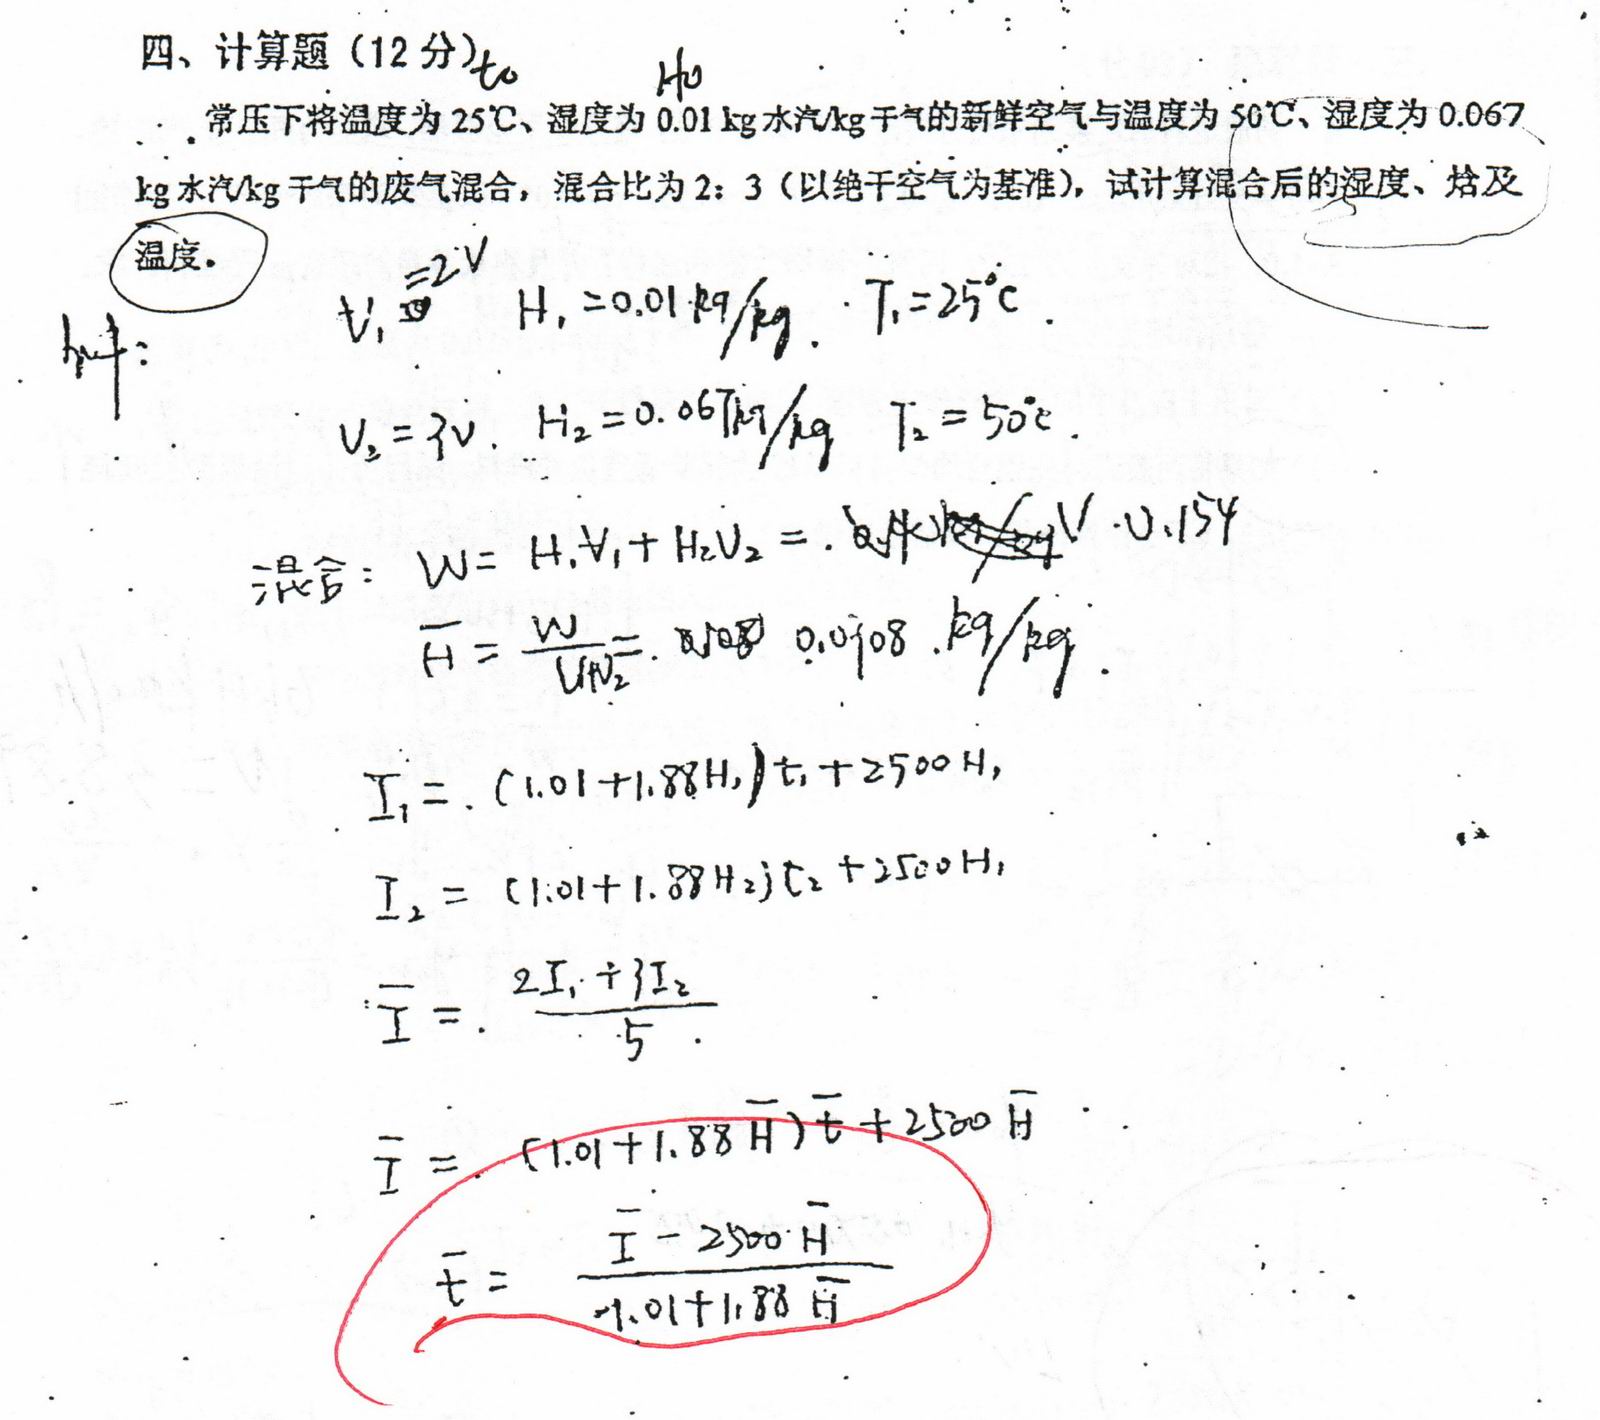 四、计算题（12 分）t₀ H₀
常压下将温度为 25℃、湿度为 0.01 kg 水汽/kg 干气的新鲜空气与温度为 50℃、湿度为 0.067
kg 水汽/kg 干气的废气混合，混合比为 2：3（以绝干空气为基准），试计算混合后的湿度、焓及
温度。
解：
V₁=2V H₁=0.01kg/kg. T₁=25℃.
V₂=3V. H₂=0.067kg/kg T₂=50℃.
混合：W= H₁V₁+H₂V₂= V·0.154
H̄ = W/(V₁+V₂) = kg/kg.
I₁=(1.01+1.88H₁)t₁+2500H₁
I₂=(1.01+1.88H₂)t₂+2500H₁
Ī = (2I₁+3I₂)/5
Ī = (1.01+1.88H̄)t̄+2500H̄
t̄ = (Ī-2500H̄)/(1.01+1.88H̄)